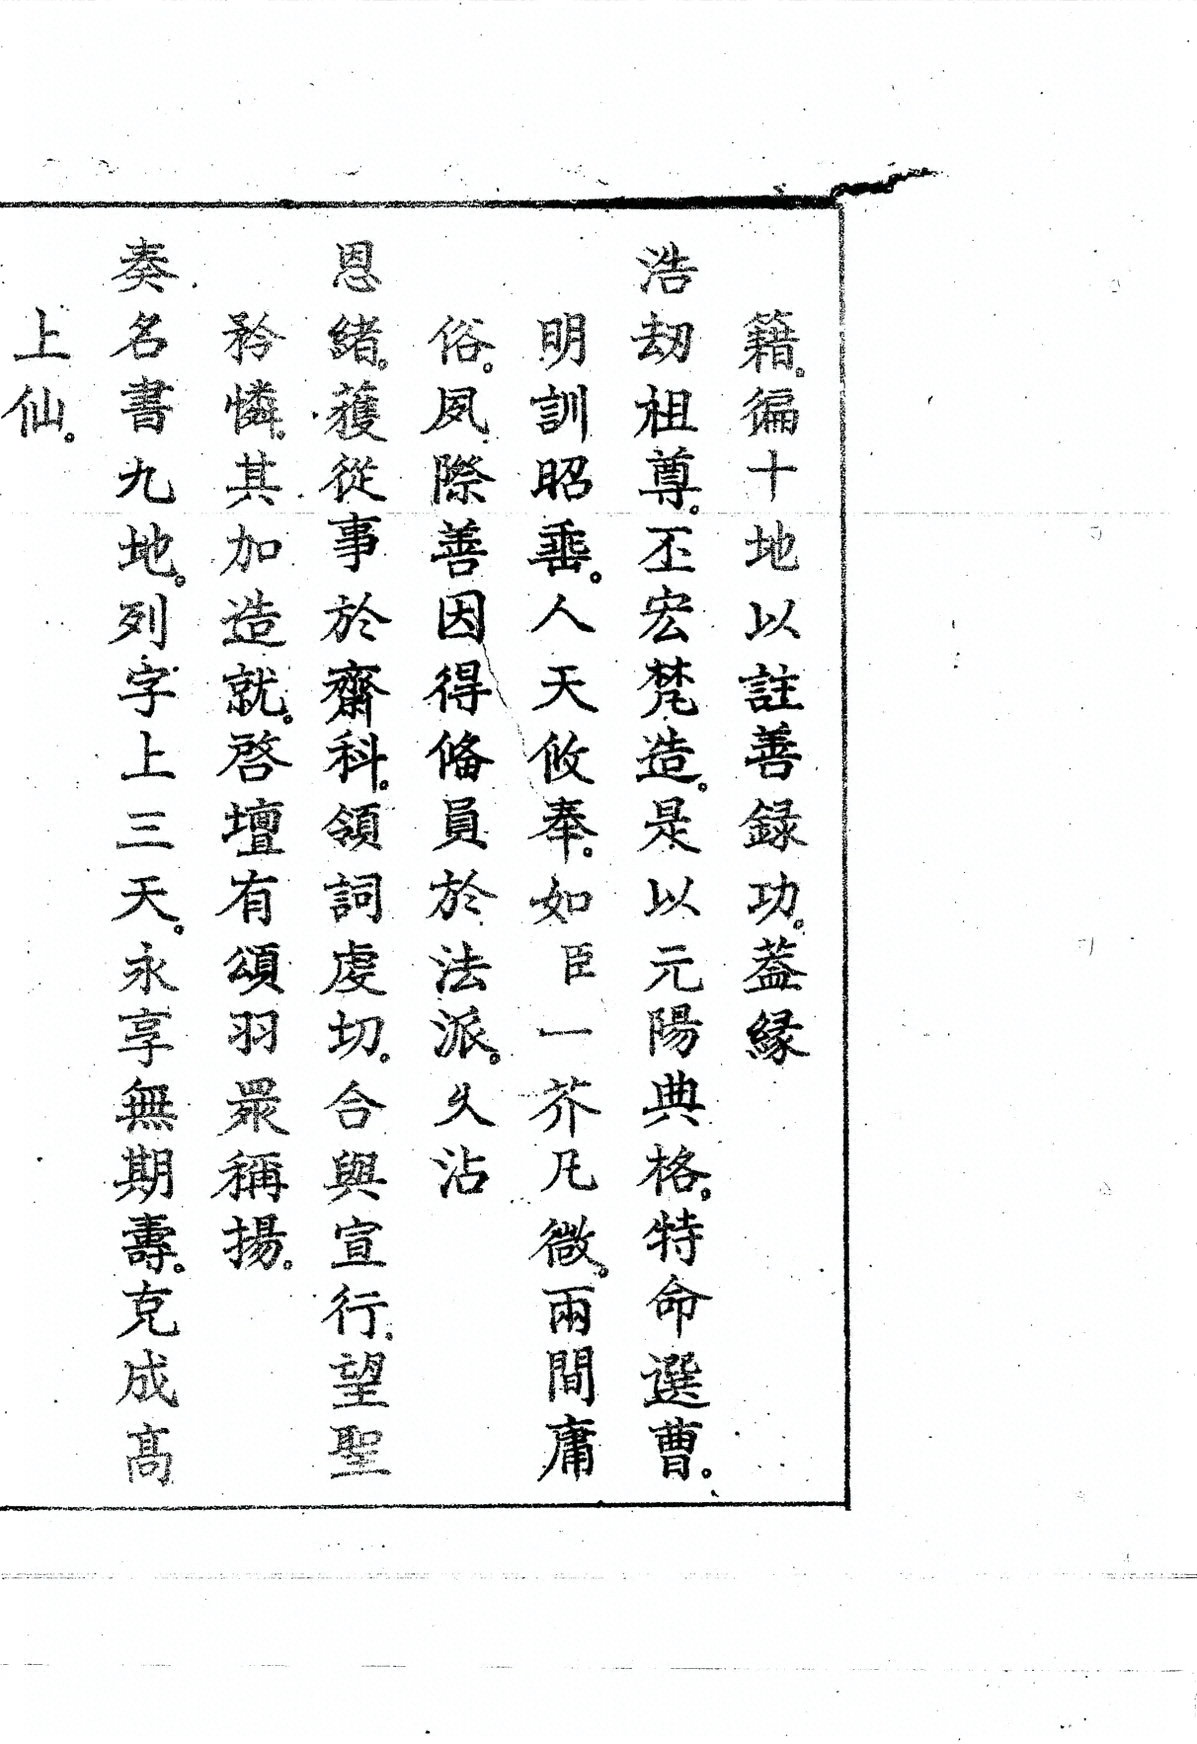 籍。徧十地以註善録功。葢縁
浩劫祖尊。丕宏梵造。是以元陽典格。特命選曹。
明訓昭垂。人天攸奉。如臣一芥凡微。兩間庸
俗。夙際善因得俻員於法派。久沾
恩緒。獲從事於齋科。領詞虔切。合與宣行。望聖
矜憐。其加造就。啓壇有頌羽眾稱揚。
奏名書九地。列字上三天。永享無期壽。克成高
上仙。